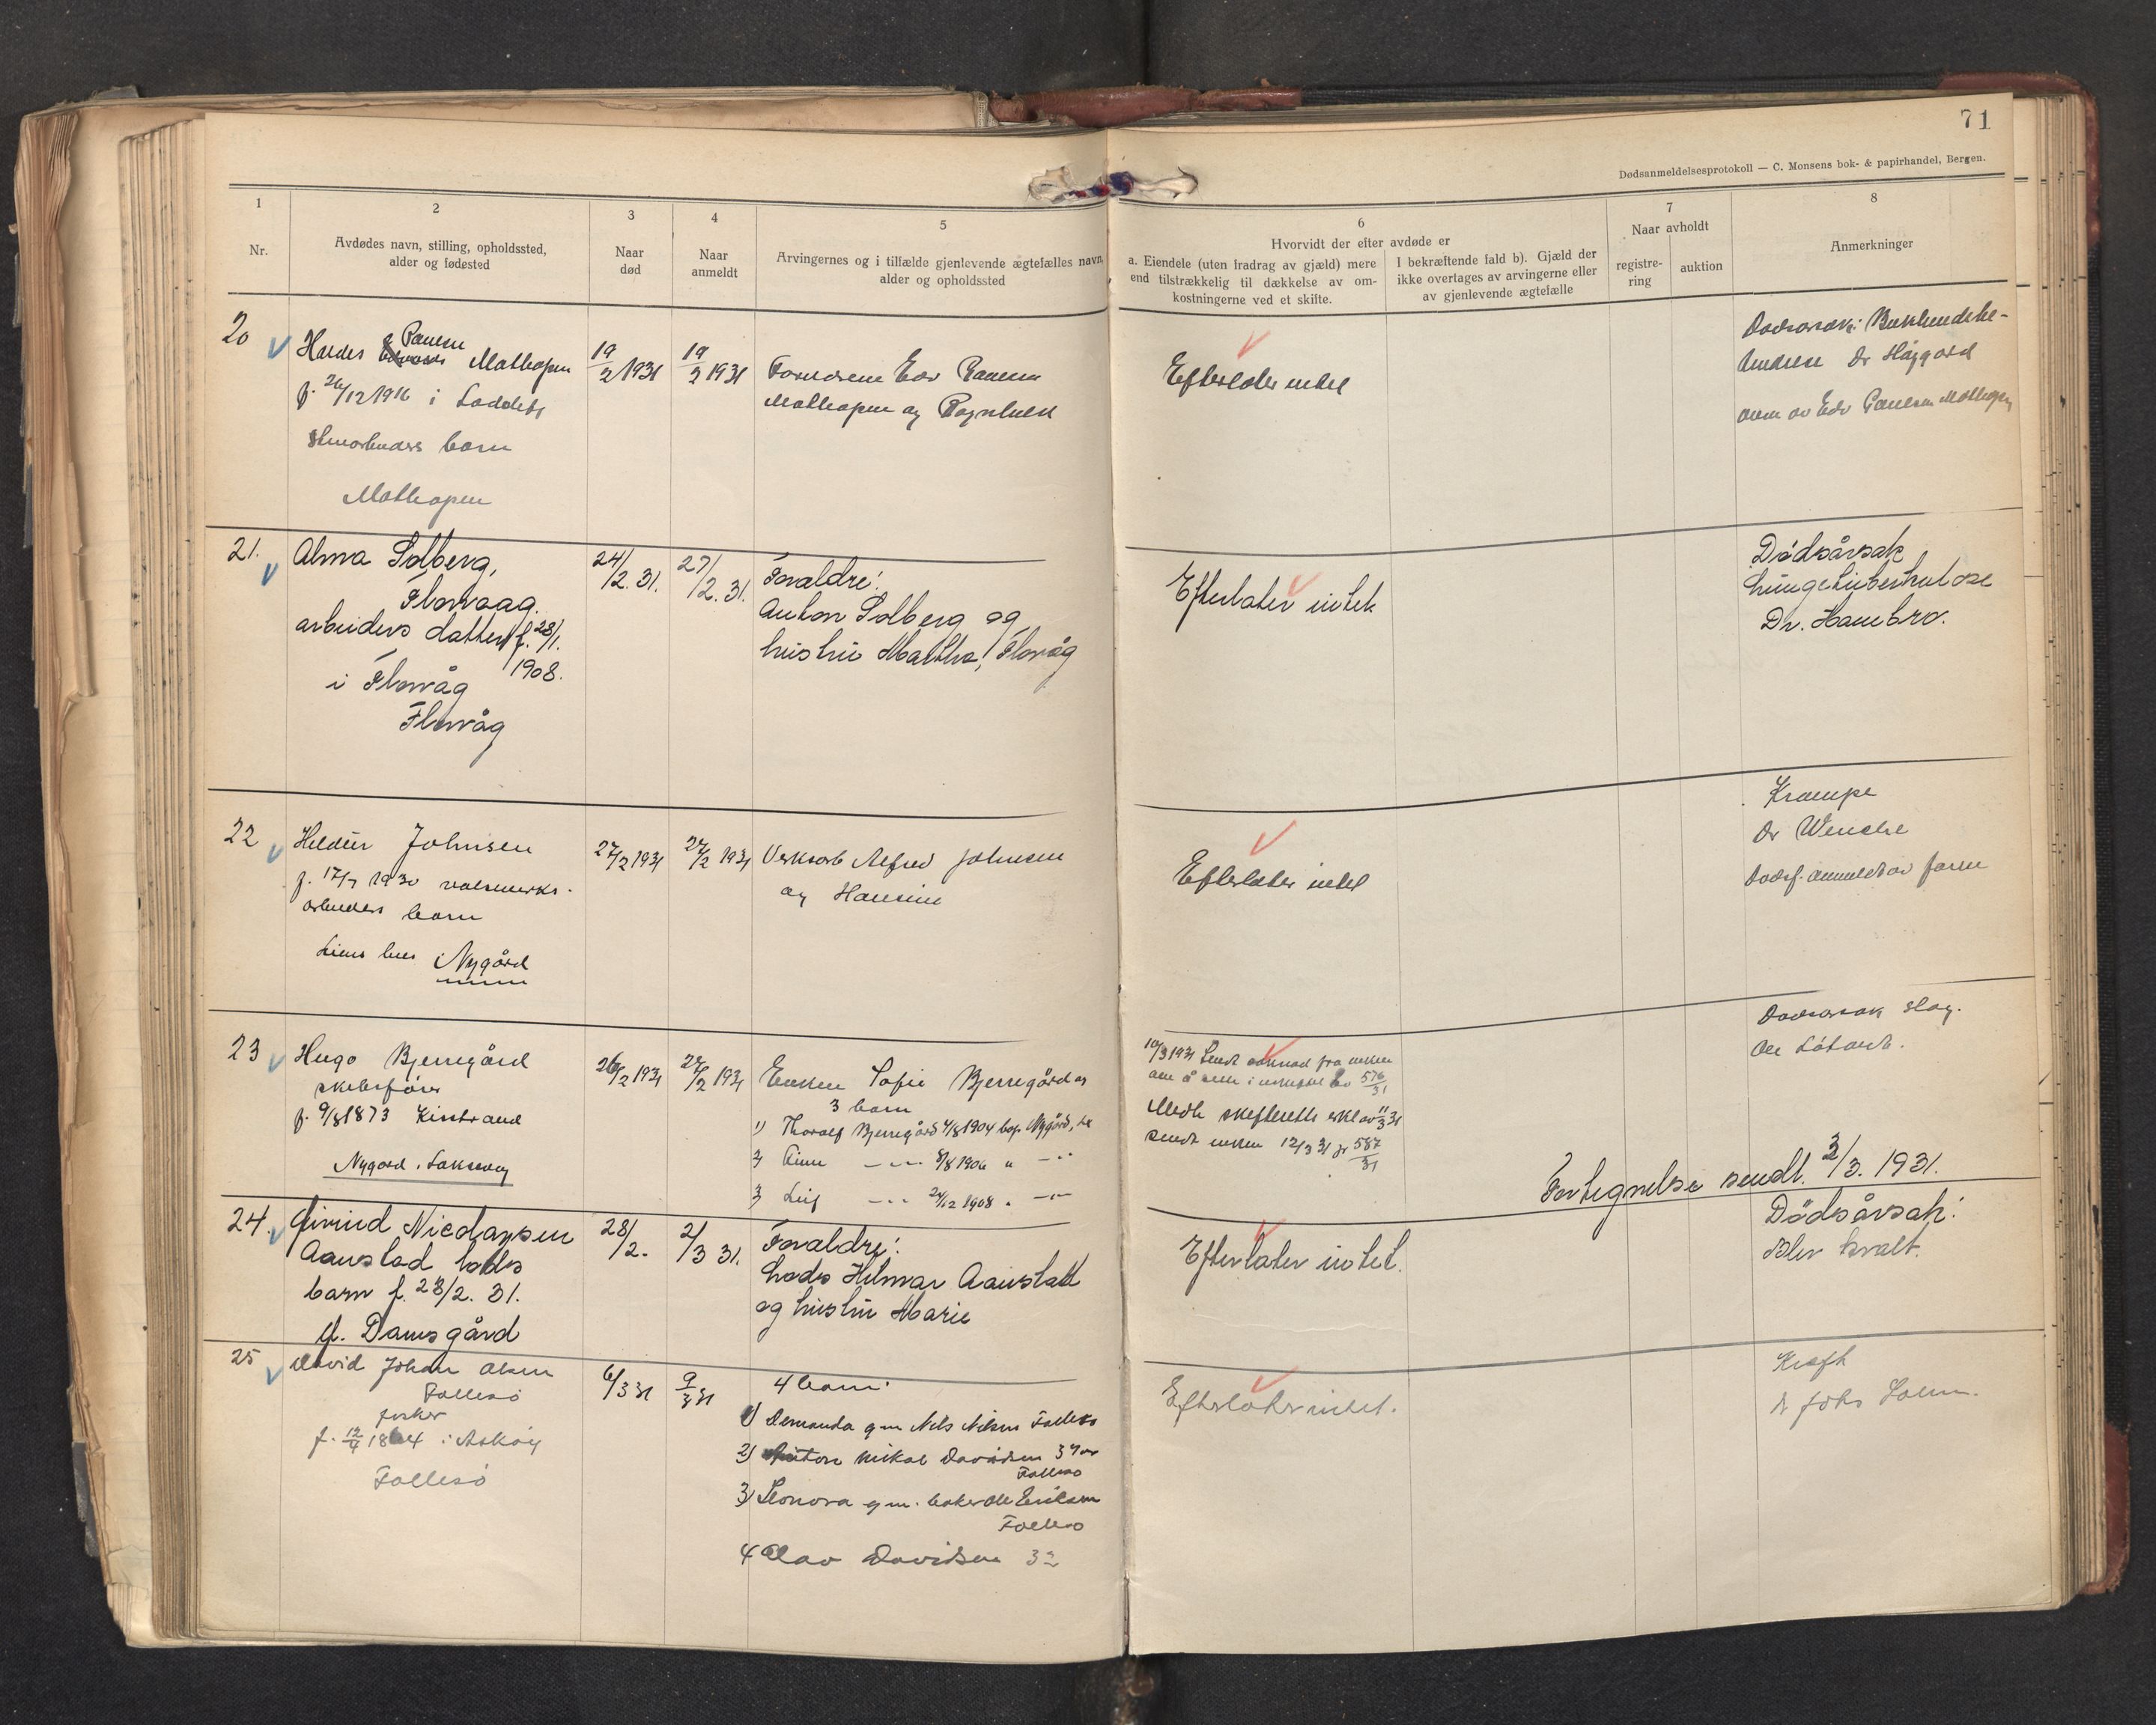 71
Dødsanmeldelsesprotokoll — C. Monsens bok- & papirhandel, Bergen.
1
Nr.
2
Avdødes navn, stilling, opholdssted,
alder og fødested
3
Naar
død
4
Naar
anmeldt
5
Arvingernes og i tilfælde gjenlevende ægtefælles navn,
alder og opholdssted
6
Hvorvidt der efter avdøde er
a. Eiendele (uten fradrag av gjæld) mere
end tilstrækkelig til dækkelse av om-
kostningerne ved et skifte.
I bekræftende fald b). Gjæld der
ikke overtages av arvingerne eller
av gjenlevende ægtefælle
7
Naar avholdt
registre-
ring
auktion
8
Anmerkninger
20
Paulsen
Mathopen
f. 26/12 1916 i Laddefj
barn
Mathopen
19/2 1931
19/2 1931
Forældrene Edv Paulsen
Mathopen og
Efterlater intet
Dødsarsak:
Dr
anm av Edv Paulsen Mathopen
21.
Alma Solberg,
Florvaag.
arbeiders datter f. 28/1.
1908.
i Florvåg
Florvåg
24/2. 31.
27/2. 31.
Foraldre:
Anton Solberg og
hustru Martha, Florvåg
Efterlater intet
Dødsårsak
Lungetuberkulose
Dr. Hambro.
22
Johnsen
f. 17/7 1930
arbeiders barn
Nygård
27/2 1931
27/2 1931
Alfred Johnsen
og Hansine
Efterlater intet
Krampe
Dr Wencke
Dødsf. anmeldt av faren
23
Hugo Bjerregård
skibsfører
f. 9/8 1873 Kistrand
Nygård, Laksevåg
26/2 1931
27/2 1931
Enken Sofie Bjerregård og
3 barn
1) Thoralf Bjerregård 4/8 1904 bop. Nygård,
2) — 8/8 1906 " —
3) Leif — 24/12 1908 " —
10/3 1931 Sendt fra enken
576/31
Medt skifteretts erkl av 11/3 31
sendt enken 12/3 31 jr 587/31
Dødsarsak slag.
Fortegnelse sendt. 2/3. 1931.
24.
Øivind Nicolaysen
Aanstad lods
barn f. 28/2. 31.
Damsgård
28/2.
2/3 31.
Foraldre:
Lods Hilmar Aanstad
og hustru Marie
Efterlater intet.
Dødsårsak:
Blev kvalt.
25
David Johan Olsen
Follesø
fisker
f. 12/4 1864 i Askøy
Follesø
6/3 31
9/3 31
4 barn:
1) gm Nils Nilsen Follesø
2) Mikal Davidsen 37 år
Follesø
3) Leonora gm. Eriksen
Follesø
4 Olav Davidsen 32
Efterlater intet.
Kræft
Dr Johs